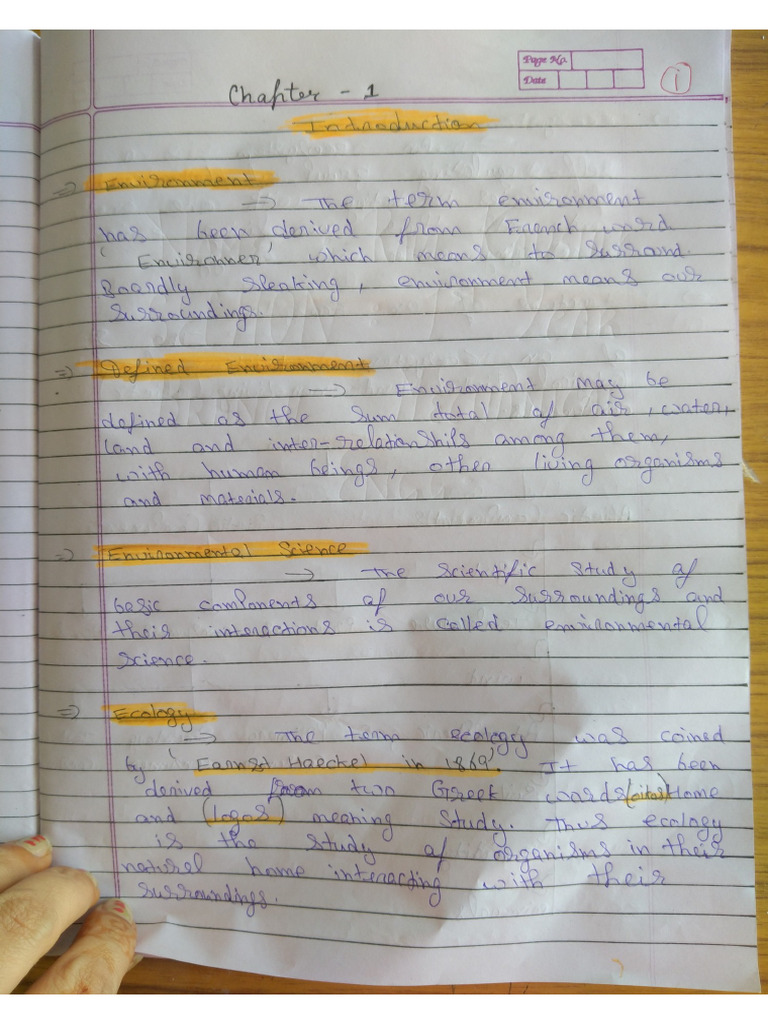 Page No.
Date
i
Chapter - 1
Introduction
=> Environment
-> The term environment
has been derived from French word
'Environner' which means to surround.
Boardly speaking, environment means our
surroundings.
=> Defined Environment
-> Environment may be
defined as the sum total of air, water,
land and inter-relationships among them,
with human beings, other living organisms
and materials.
=> Environmental Science
-> The scientific study of
basic components of our surroundings and
their interactions is called environmental
science.
=> Ecology
-> The term ecology was coined
by 'Earnst Haeckel in 1869'. It has been
derived from two Greek words (oikos) Home
and (logos) meaning study. Thus ecology
is the study of organisms in their
naturel home interacting with their
surroundings.